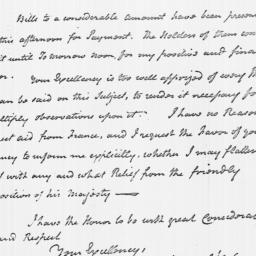 Bills to a considerable amount have been presen
this afternoon for Payment. The Holders of them con
it until To morrow noon for my positive and fina
r.
Your Excellency is too well apprized of every th
an be said on this Subject, to render it necessary for
ltiply observations upon it. I have no Reason
ect aid from France, and I request the Favor of you
ncy to inform me explicitly, whether I may flatter
with any and what Relief from the friendly
position of his Majesty —
I have the Honor to be with great Considerat
and Respect
Your Excellency's